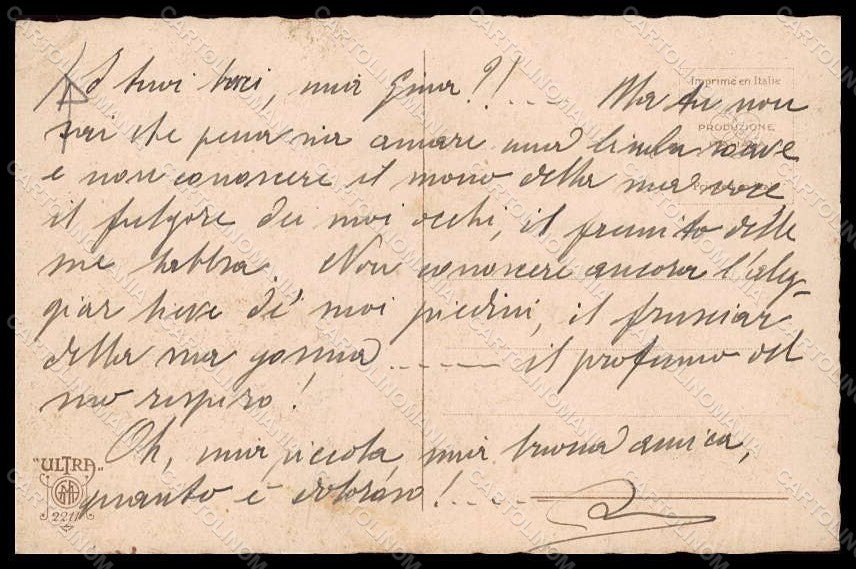 I tuoi baci, mia Gina?!... Ma tu non
sai che pena sia amare una bimba soave
e non conoscere il suono della sua voce,
il fulgore dei suoi occhi, il fremito delle
sue labbra. Non conoscere ancora l'aleg-
giar lieve de' suoi piedini, il frusciar
della sua gonna ...... il profumo del
suo respiro!
Oh, mia piccola, mia buona amica,
quanto è doloroso!.....
Imprimé en Italie
PRODUZIONE
"ULTRA"
2211
CARTOLINOMANIA